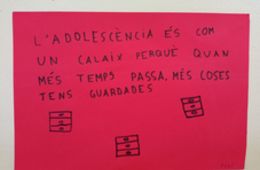 L'ADOLESCÈNCIA ÉS COM
UN CALAIX PERQUÈ QUAN
MÉS TEMPS PASSA, MÉS COSES
TENS GUARDADES